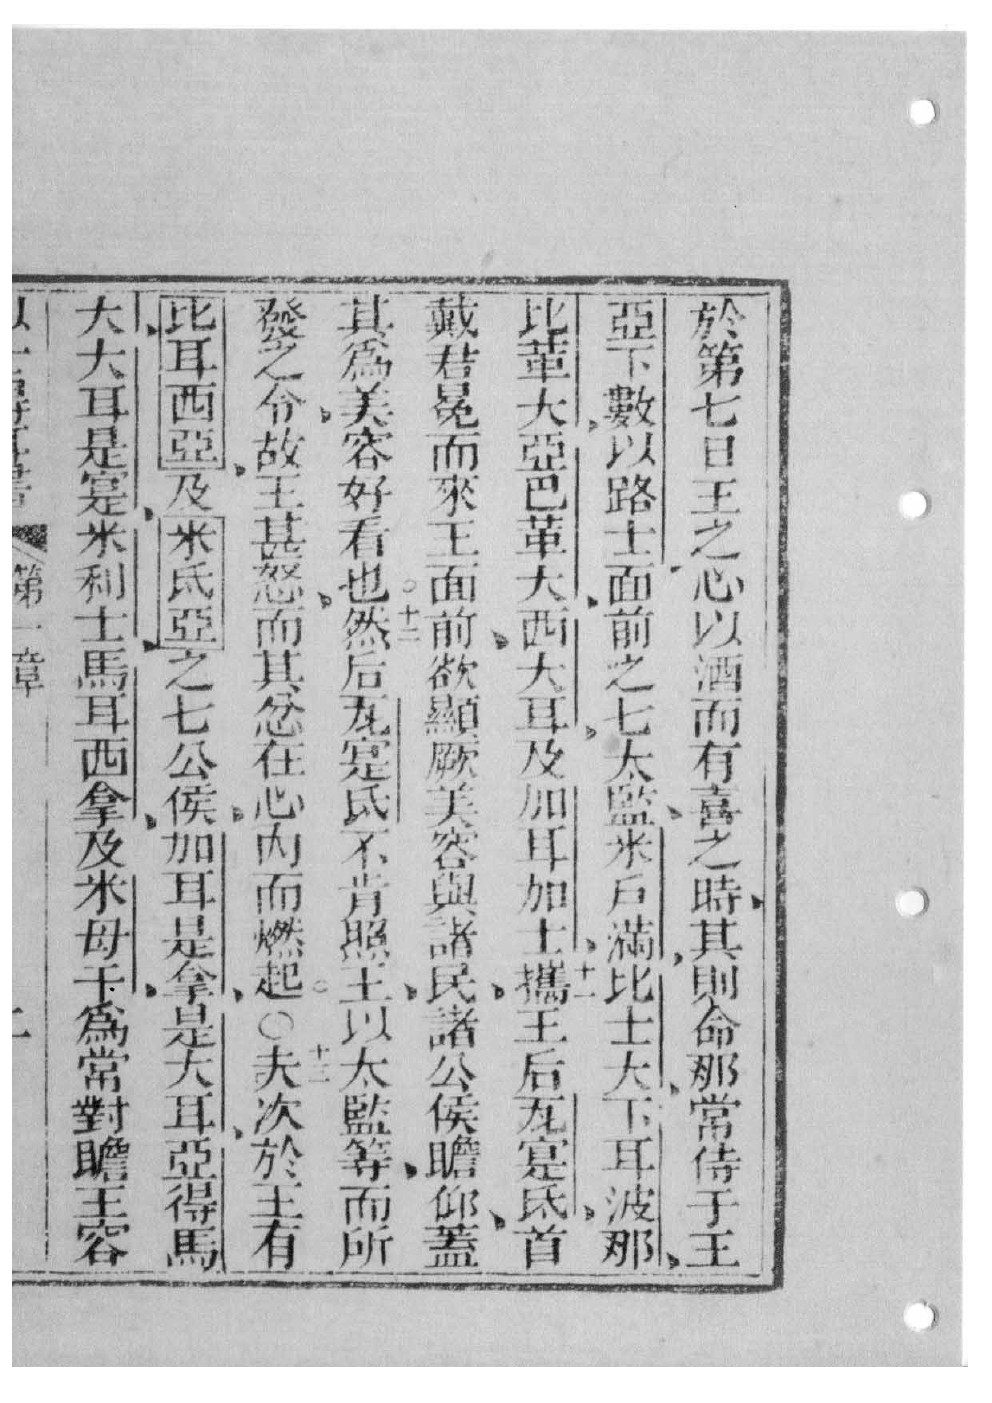 於第七日王之心以酒而有喜之時其則命那常侍于王
亞下數以路士面前之七太監米戶滿比士大下耳波那
比革大亞巴革大西大耳及加耳加士十一攜王后瓦寔氐首
戴君冕而來王面前欲顯厥美容與諸民諸公侯瞻仰蓋
其爲美容好看也○十二然后瓦寔氐不肯照王以太監等而所
發之令故王甚怒而其忿在心內而燃起○○十三夫次於王有
比耳西亞及米氐亞之七公侯加耳是拿是大耳亞得馬
大大耳是寔米利士馬耳西拿及米母干爲常對瞻王容
第一章 二